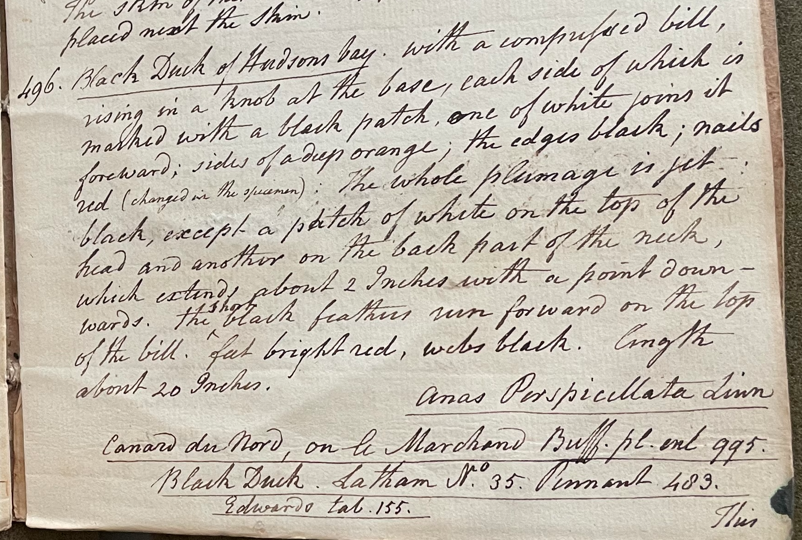 The skin of the
placed next the Skin.
496. Black Duck of Hudsons bay. with a compressed bill,
rising in a knob at the base, each side of which is
marked with a black patch, one of white joins it
forward; sides of a deep orange; the edges black; nails
red (changed in the specimen). The whole plumage is jet-
black, except a patch of white on the top of the
head and another on the back part of the neck,
which extends about 2 Inches with a point down-
wards. The short black feathers run forward on the top
of the bill. feet bright red, webs black. Length
about 20 Inches.
Anas Perspicellata Linn
Canard du Nord, ou le Marchand Buff. pl. enl. 995.
Black Duck. Latham No. 35. Pennant 483.
Edwards tab. 155.
This